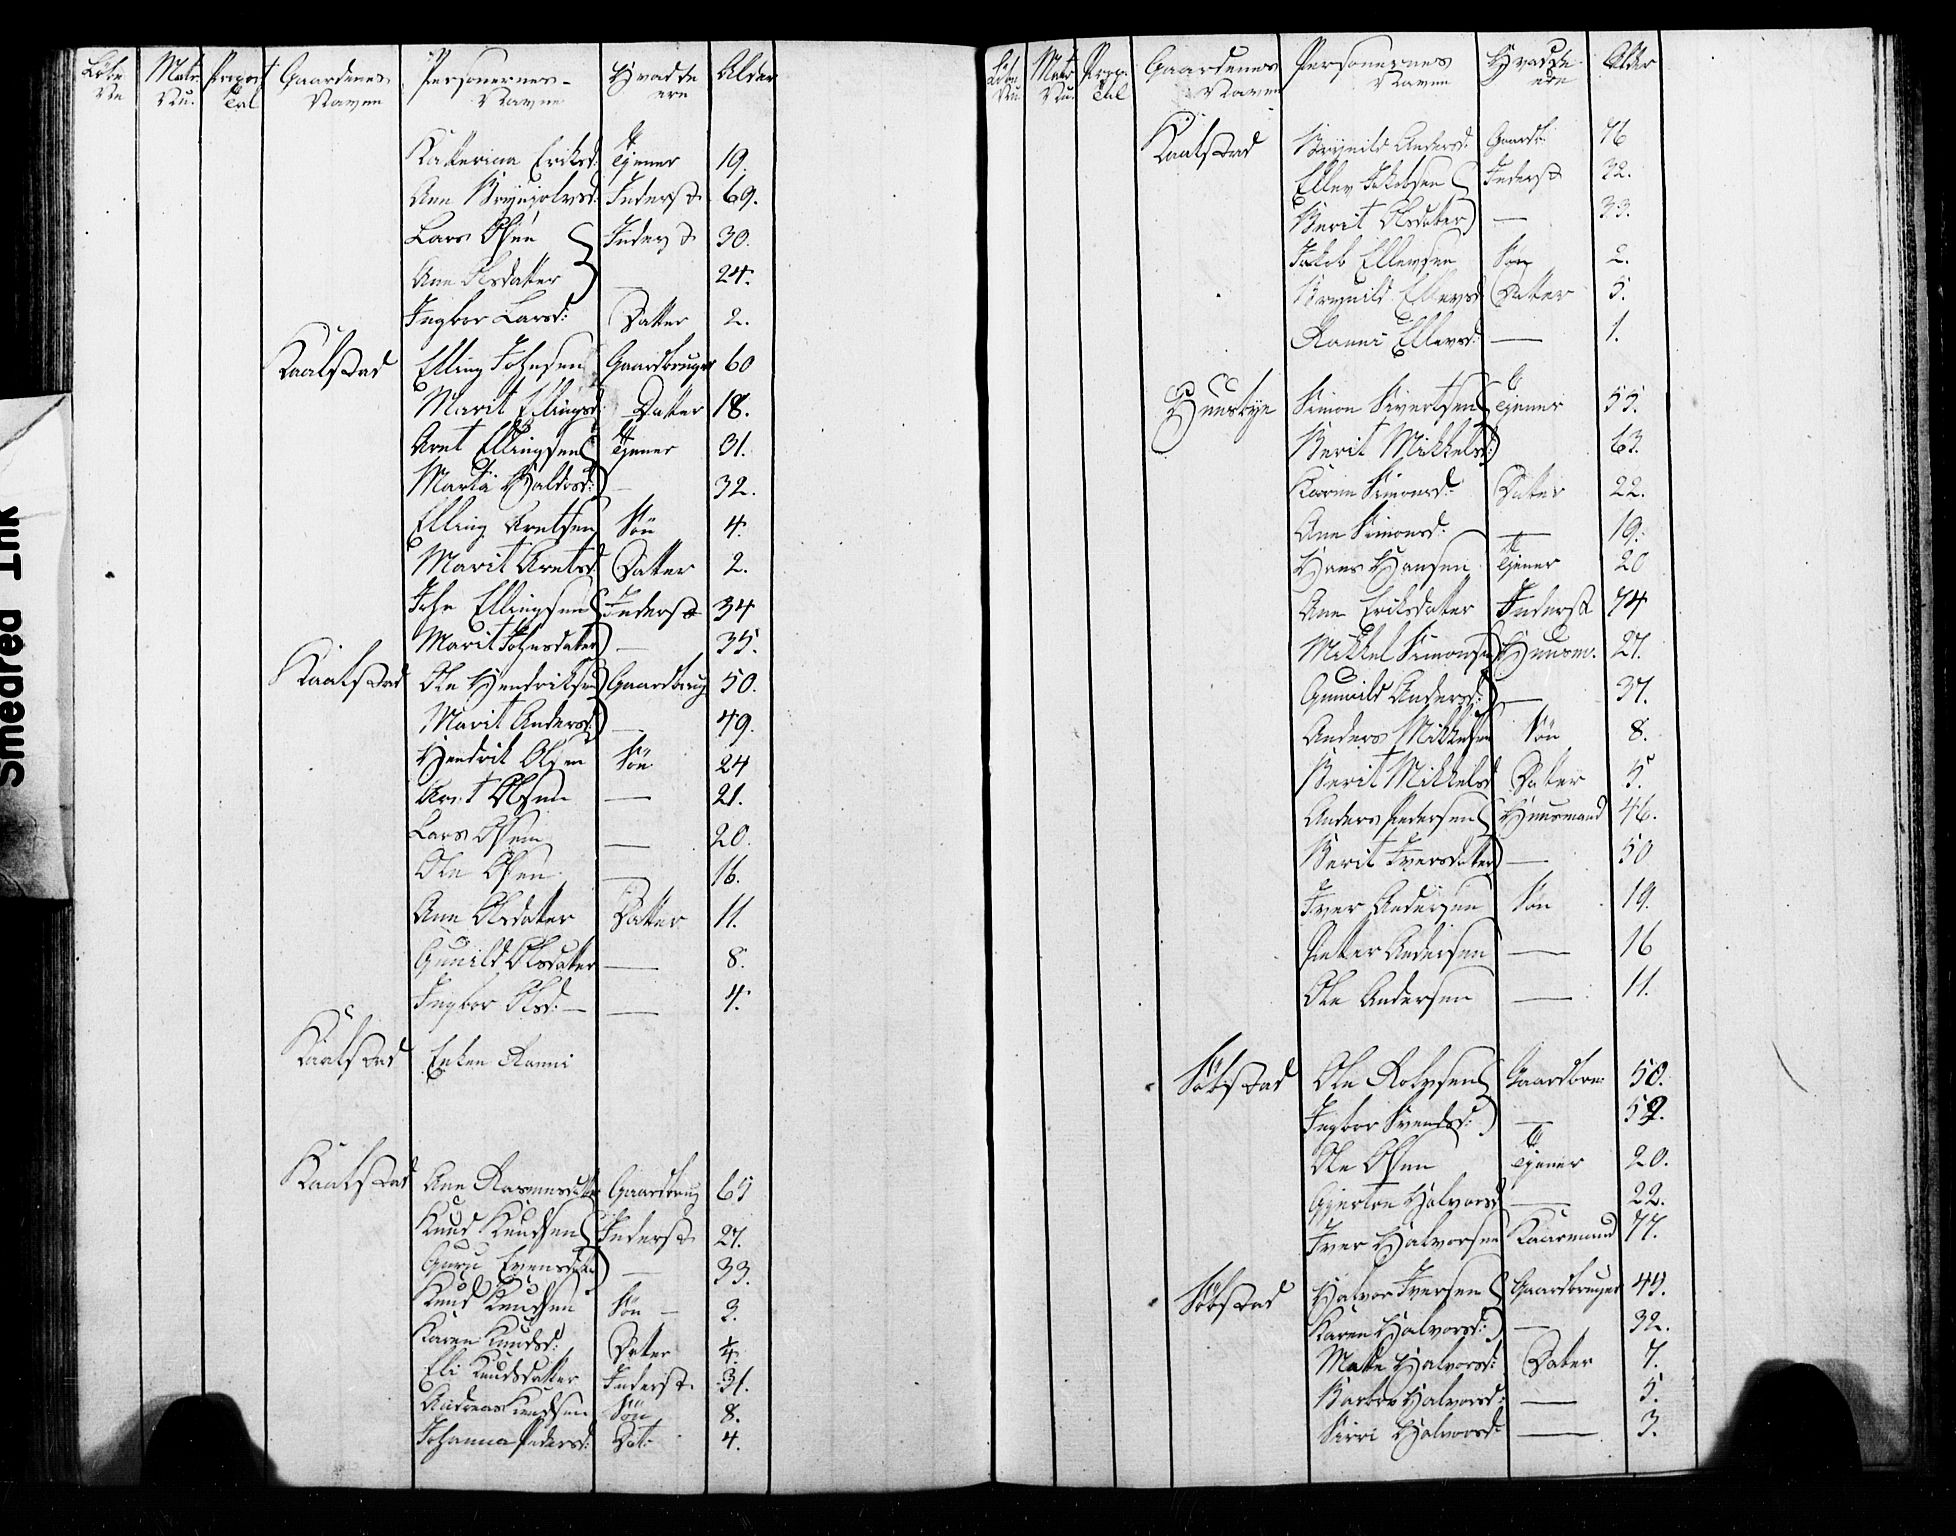 Smeared Ink
Løbe No Matr. Nu. Proport Tal Gaardenes Navne Personernes Navne Hvad de ere Alder
Katterina Eriksd: Tjener 19.
Ane Brynjolvsd: Inderst 69.
Lars Olsen Inderst 30.
Ane Olsdatter — 24.
Ingbor Larsd: Datter 2.
Kaalstad Elling Johnsen Gaardbruger 60
Marit Ellingsd Datter 18.
Arnt Ellingsen Tjener 31.
Marta Haldosd: — 32.
Elling Arntsen Søn 4.
Marit Arntsd. Datter 2.
John Ellingsen Inderst 34
Marit Johnsdatter — 35.
Kaalstad Ole Hendriksen Gaardbrug 50.
Marit Andersd: — 49.
Hendrik Olsen Søn 24
Arnt Olsen — 21.
Lars Olsen — 20.
Ole Olsen — 16.
Ane Olsdatter Datter 11.
Gunild Olsdatter — 8.
Ingbor Olsd: — 4.
Kaalstad Enken Ranni
Kaalstad Ane Rasmusdatter Gaardbrug 65
Knud Knudsen Inderst 27.
Guru Evensdatter — 33.
Knud Knudsen Søn — 3.
Karen Knudsd: Datter 1/4.
Eli Knudsdatter Inderst 31.
Andreas Knudsen Søn 8.
Johanna Pedersd: Dat: 4.
Løbe Nu. Matr Nu. Prop: Tal Gaardenes Navne Personernes Navne Hvad de ere Alder
Kaalstad Brynild Andersd: Gaardb: 76
Ellev Jakobsen Inderst 32.
Berit Olsdatter — 33.
Jakob Ellevsen Søn 2.
Brynild Ellevsd Datter 5.
Ranni Ellevsd: — 1.
Huusbye Simon Sivertsen Tjener 55.
Berit Mikkelsd: 63.
Karen Simonsd: Datter 22.
Ane Simonsd: — 19.
Hans Hansen Tjener 20
Ane Eriksdatter Inderst 74
Mikkel Simonsen Huusm. 27.
Gunild Andersd: — 37.
Anders Mikkelsen Søn 8.
Berit Mikkelsd Datter 5.
Anders Pedersen Huusmand 46.
Berit Iversdatter — 50
Iver Andersen Søn 19.
Petter Andersen — 16
Ole Andersen — 11.
Søbstad Ole Rolvsen Gaardbr: 50.
Ingbor Svendsd: — 52.
Ole Olsen Tjener 20.
Halvorsd — 22.
Iver Halvorsen Kaarmand 77.
Søbstad Halvor Iversen Gaardbruger 45.
Karen Halvorsd: — 32.
Mette Halvorsd: Datter 7.
Barbro Halvorsd: — 5.
Sirri Halvorsd: — 3.